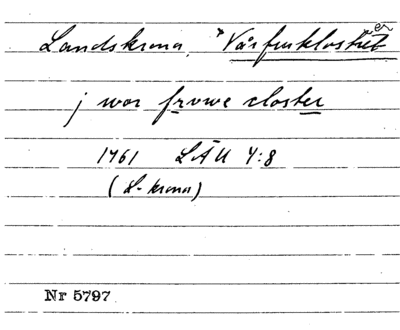 Landskrona, *Vårfruklostret
j wor frowe closter
1461 LÄU 4:8
(L-krona)
Nr 5797